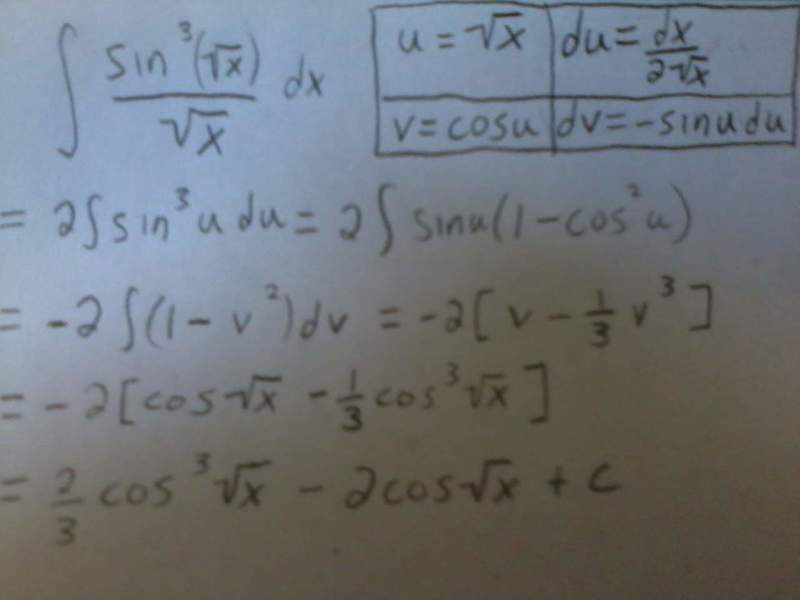 ∫ sin³(√x)/√x dx
u = √x du = dx/2√x
v = cosu dv = -sinudu
= 2∫sin³u du = 2∫ sinu(1-cos²u)
= -2∫(1-v²)dv = -2[v - 1/3 v³]
= -2[cos√x - 1/3 cos³√x]
= 2/3 cos³√x - 2cos√x + c